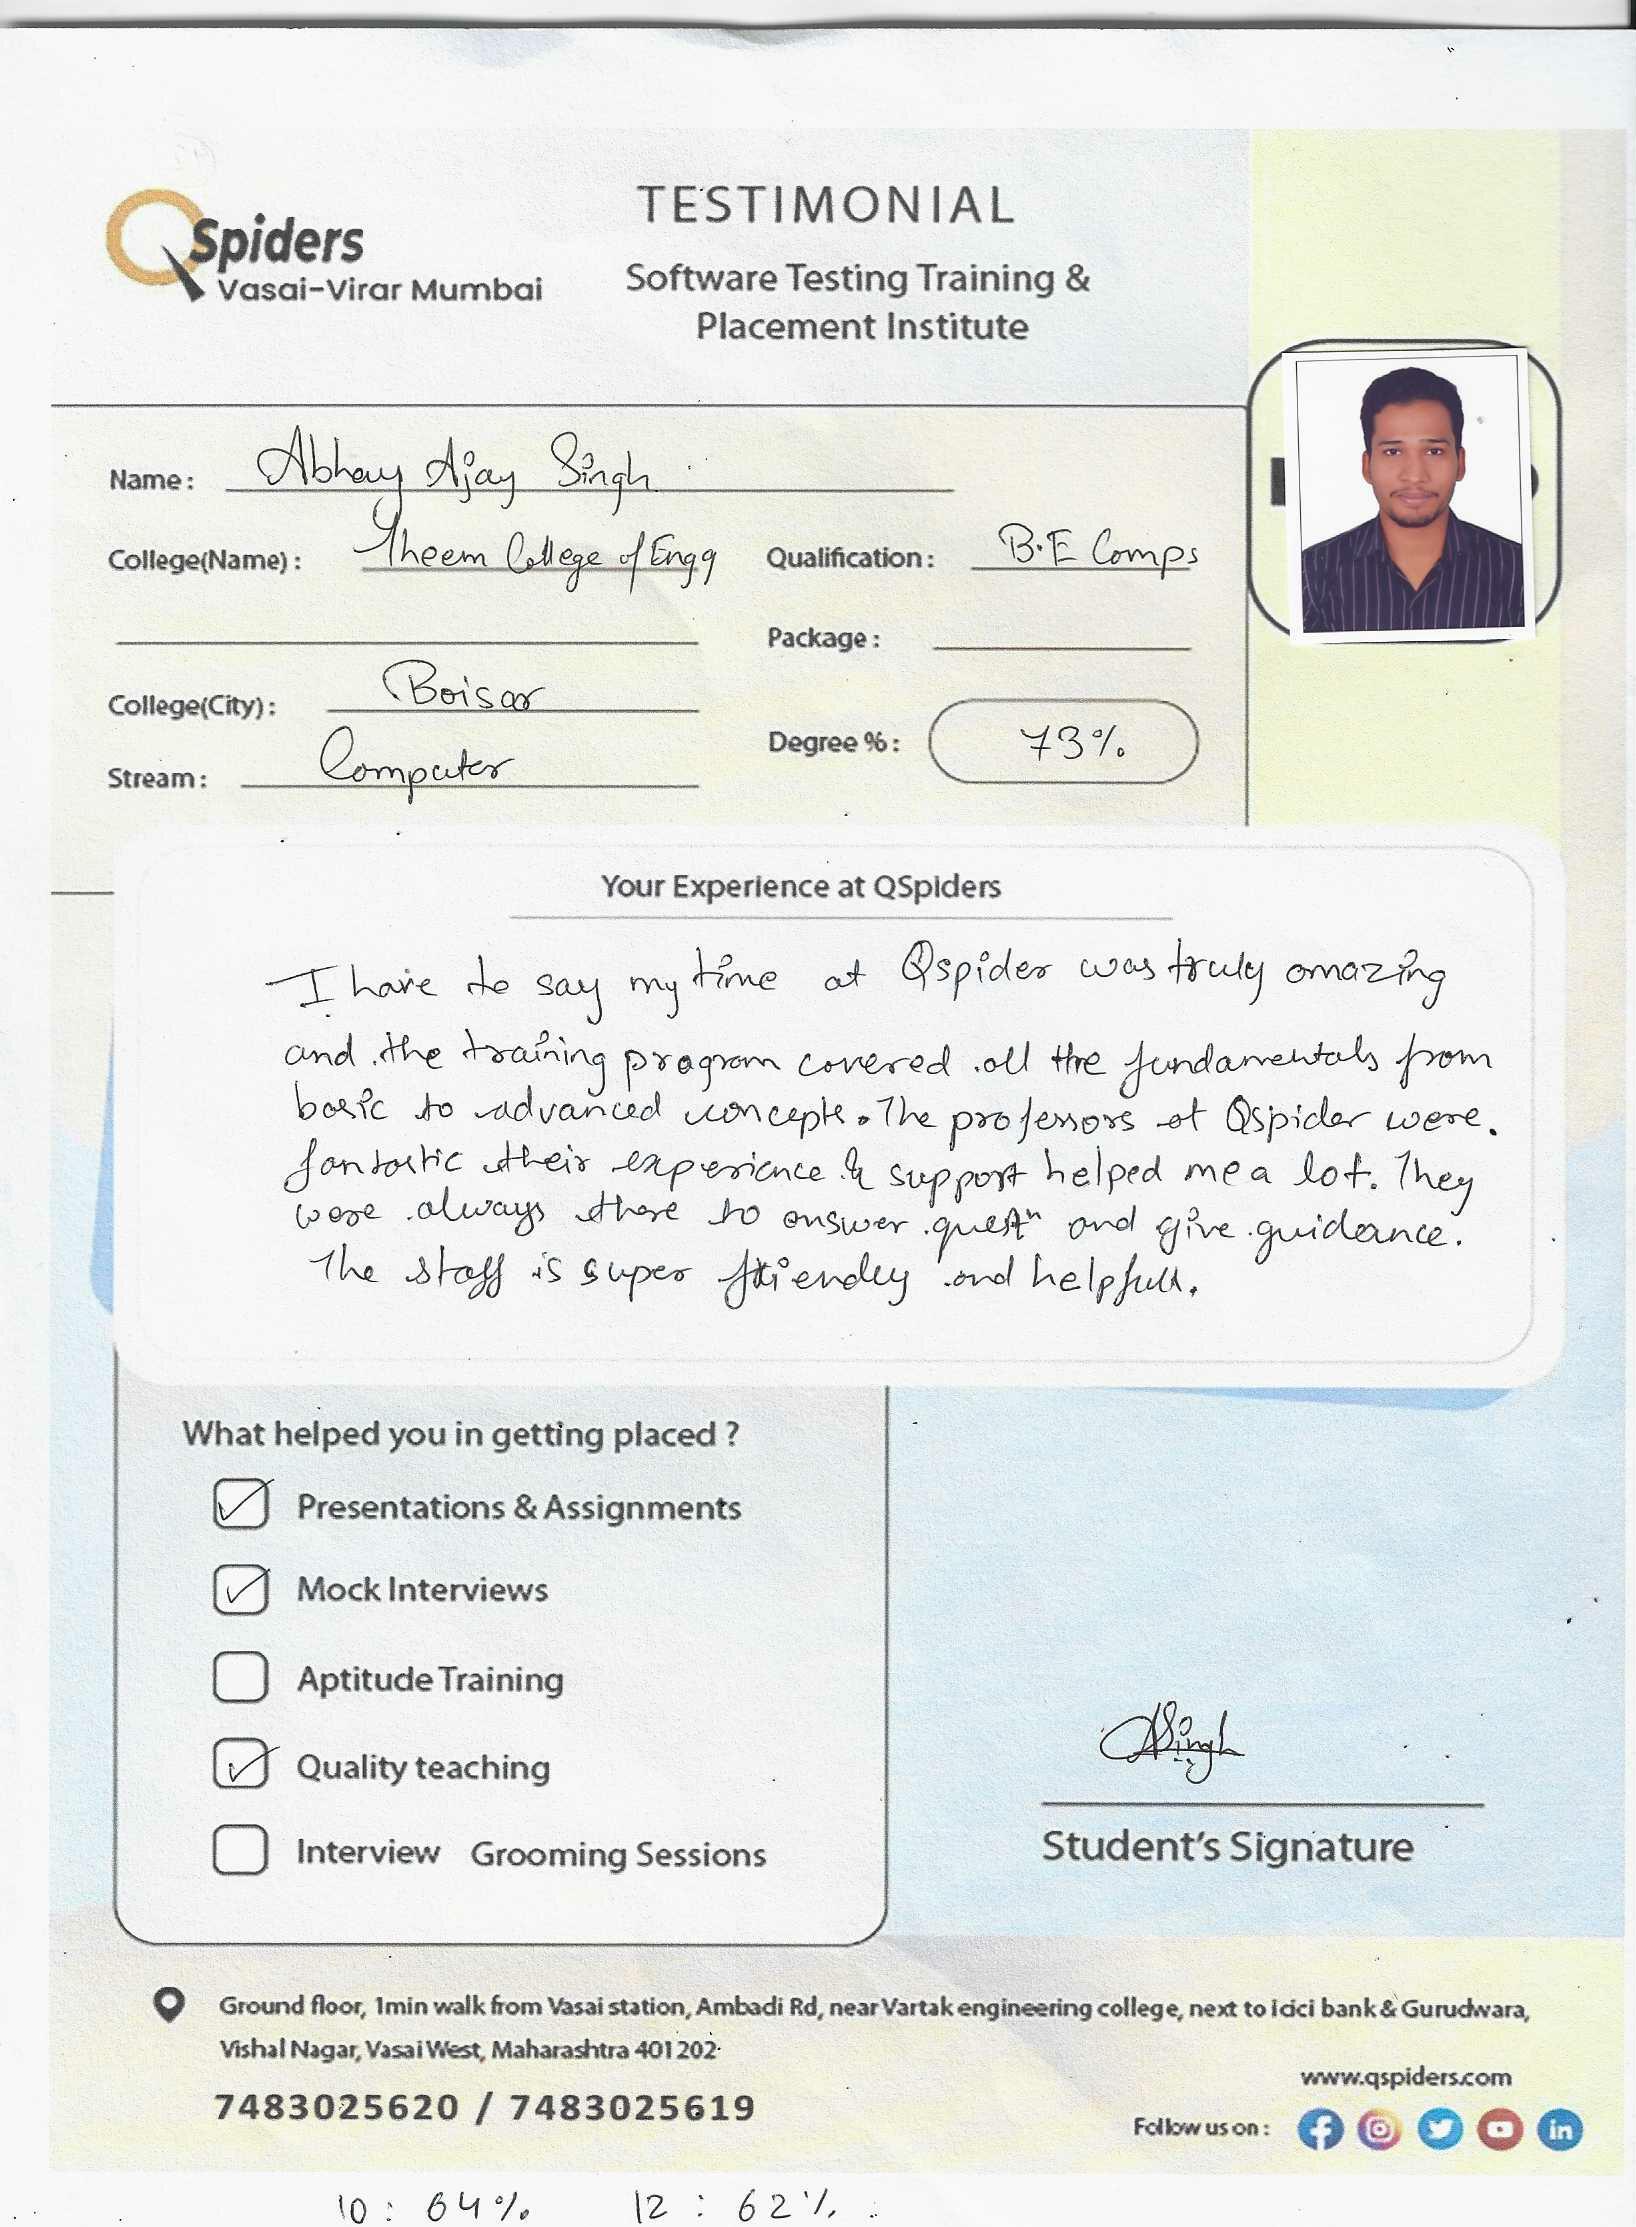 QSpiders
Vasai-Virar Mumbai
TESTIMONIAL
Software Testing Training &
Placement Institute
Name: Abhay Ajay Singh
College(Name): Theem College of Engg
Qualification: B.E Comps
Package:
College(City): Boisar
Degree %: 73%
Stream: Computer
Your Experience at QSpiders
I have to say my time at Qspider was truly amazing
and the training program covered all the fundamentals from
basic to advanced concepts. The professors at Qspider were.
fantastic their experience & support helped me a lot. They
were always there to answer questn and give guidance.
The staff is super friendly and helpfull.
What helped you in getting placed ?
Presentations & Assignments
Mock Interviews
Aptitude Training
Quality teaching
Interview Grooming Sessions
ASingh
Student's Signature
Ground floor, 1min walk from Vasai station, Ambadi Rd, near Vartak engineering college, next to Icici bank & Gurudwara,
Vishal Nagar, Vasai West, Maharashtra 401202
7483025620 / 7483025619
www.qspiders.com
Follow us on :
10 : 64% 12 : 62%